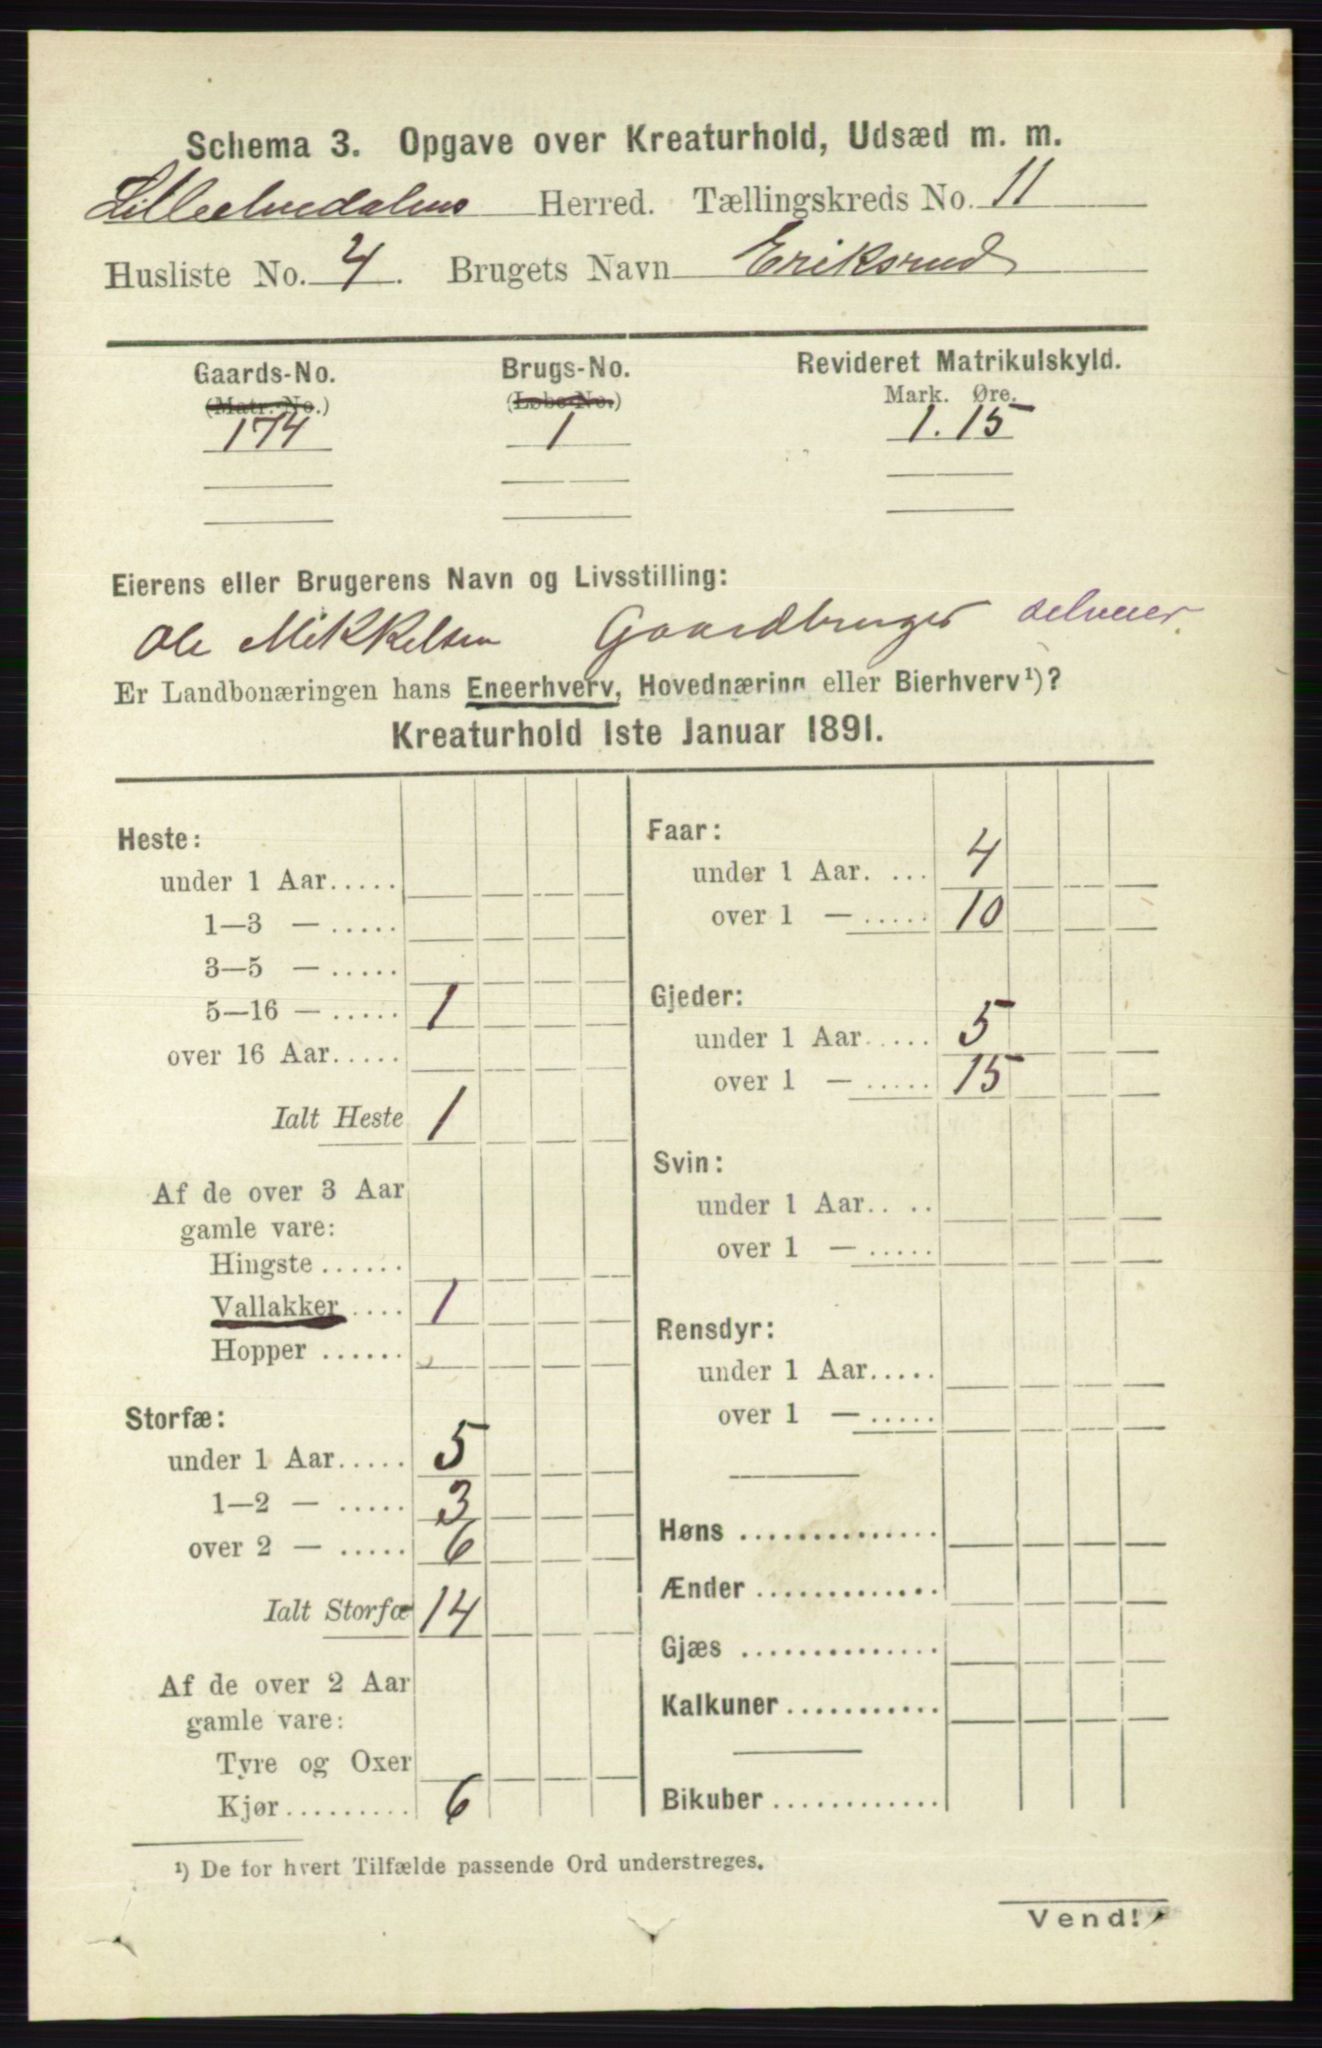 Schema 3. Opgave over Kreaturhold, Udsæd m. m.
Lilleelvedalens Herred. Tællingskreds No. 11
Husliste No. 4. Brugets Navn Eriksrud
Gaards-No. Brugs-No. Revideret Matrikulskyld.
(Matr.-No.) (Løbe-No.) Mark. Øre.
174 1 1.15
Eierens eller Brugerens Navn og Livsstilling:
Ole Mikkelsen Gaardbruger selveier
Er Landbonæringen hans Eneerhverv, Hovednæring eller Bierhverv¹)?
Kreaturhold 1ste Januar 1891.
Heste:
under 1 Aar.....
1—3 — .....
3—5 — .....
5—16 — ..... 1
over 16 Aar.....
Ialt Heste 1
Af de over 3 Aar
gamle vare:
Hingste......
Vallakker.... 1
Hopper......
Storfæ:
under 1 Aar..... 5
1—2 — ..... 3
over 2 — ..... 6
Ialt Storfæ 14
Af de over 2 Aar
gamle vare:
Tyre og Oxer
Kjør......... 6
Faar:
under 1 Aar. ... 4
over 1 — ..... 10
Gjeder:
under 1 Aar..... 5
over 1 — ..... 15
Svin:
under 1 Aar.. ..
over 1 — .....
Rensdyr:
under 1 Aar.....
over 1 — .....
Høns ..............
Ænder .............
Gjæs ..............
Kalkuner...........
Bikuber............
¹) De for hvert Tilfælde passende Ord understreges.
Vend!